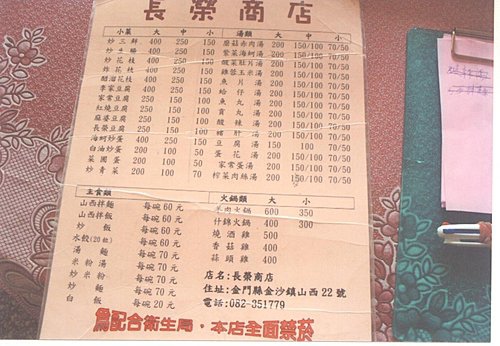 長榮商店
小菜 大 中 小
炒三鮮 400 250 150
炒生腸 400 250 150
炒花枝 400 250 150
炸花枝 400 250 150
醋溜花枝 400 250 150
李家豆腐 400 250 150
家常豆腐 250 150 100
紅燒豆腐 250 150 100
麻婆豆腐 250 150 100
長榮豆腐 250 150 100
海蚵炒蛋 200 150 100
白油炒蛋 200 100 50
菜圃蛋 200 100 50
炒青菜 200 100 50
湯類 大 中 小
蘑菇赤肉湯 200 150/100 70/50
紫菜海蚵湯 200 150/100 70/50
酸菜肚片湯 200 150/100 70/50
雞蓉玉米湯 200 150/100 70/50
魚片湯 200 150/100 70/50
蛤仔湯 200 150/100 70/50
魚丸湯 200 150/100 70/50
貢丸湯 200 150/100 70/50
酸辣湯 200 150/100 70/50
豬肝湯 200 150/100 70/50
豆腐湯 150 100 70/50
蛋花湯 200 150/100 70/50
家常蛋湯 200 150/100 70/50
榨菜肉絲湯 200 150/100 70/50
主食類
山西拌麵 每碗 60 元
山西拌飯 每碗 60 元
炒飯 每碗 60 元
水餃(20粒)
湯麵 每碗 70 元
米粉湯 每碗 70 元
炒米粉 每碗 70 元
炒麵 每碗 70 元
白飯 每碗 20 元
火鍋類 大 小
羊肉火鍋 600 350
什錦火鍋 400 300
燒酒雞 500
香菇雞 400
蒜頭雞 400
店名:長榮商店
住址:金門縣金沙鎮山西 22 號
電話:082-351779
為配合衛生局，本店全面禁菸